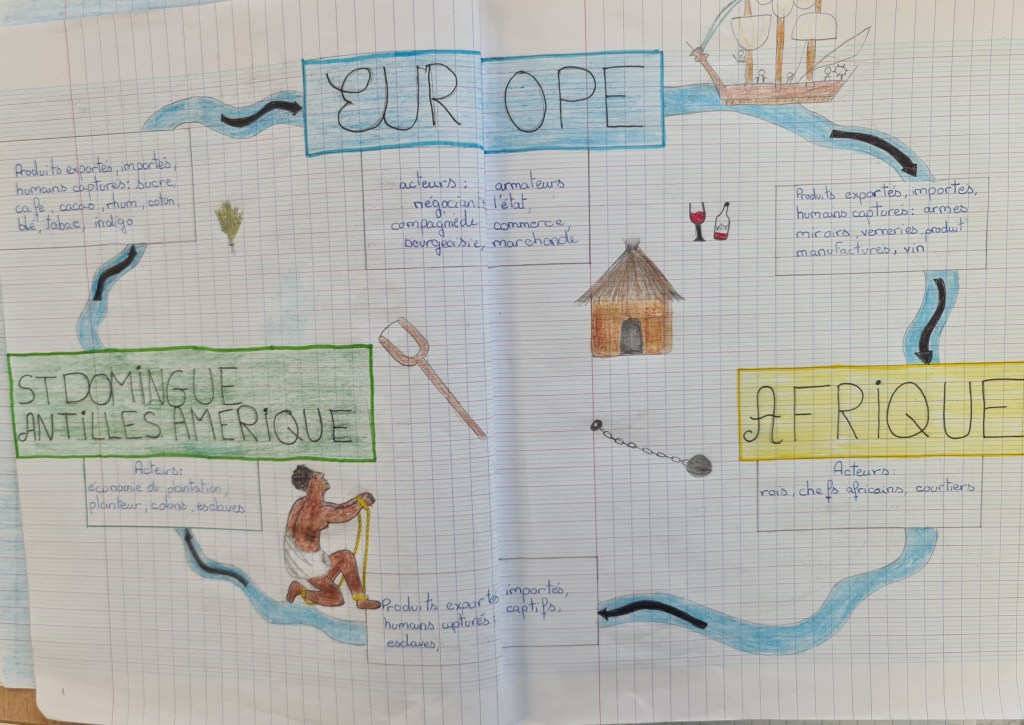 EUROPE
Produits exportés, importés,
humains capturés: sucre,
café, cacao, rhum, coton
blé, tabac, indigo
acteurs : armateurs
négociant l'état,
compagnie de commerce
bourgeoisie, marchande
Produits exportés, importés,
humains capturés: armes
miroirs, verreries, produit
manufacturés, vin
VIN
ST DOMINGUE
ANTILLES AMERIQUE
AFRIQUE
Acteurs:
économie de plantation,
planteur, colons, esclaves
Acteurs:
rois, chefs africains, courtiers
Produits exportés importés,
humains capturés: captifs,
esclaves,